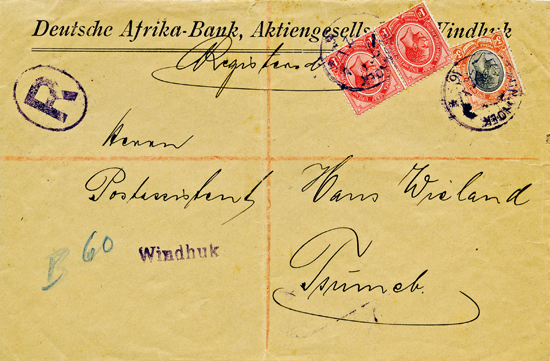 Deutsche Afrika-Bank, Aktiengesells Windhuk
Registered
R
Herrn
Postassistent Hans Wieland
B 60
Windhuk
Tsumeb.